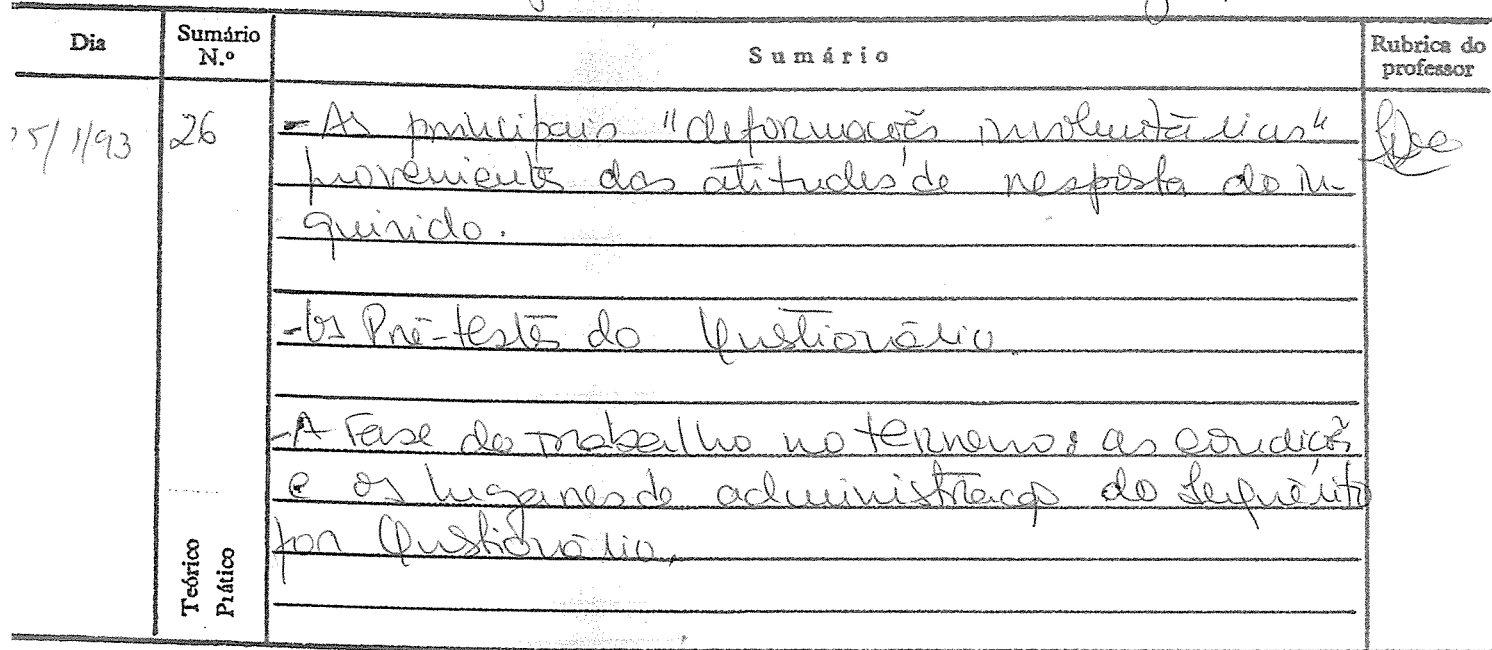 Dia
Sumário N.º
Sumário
Rubrica do professor
25/1/93
26
- As principais "deformações involuntárias"
provenientes das atitudes de resposta do in-
quirido.
- Os Pré-testes do Questionário
- A Fase do trabalho no terreno: as condições
e os lugares de administração do Inquérito
por Questionário.
Teórico
Prático